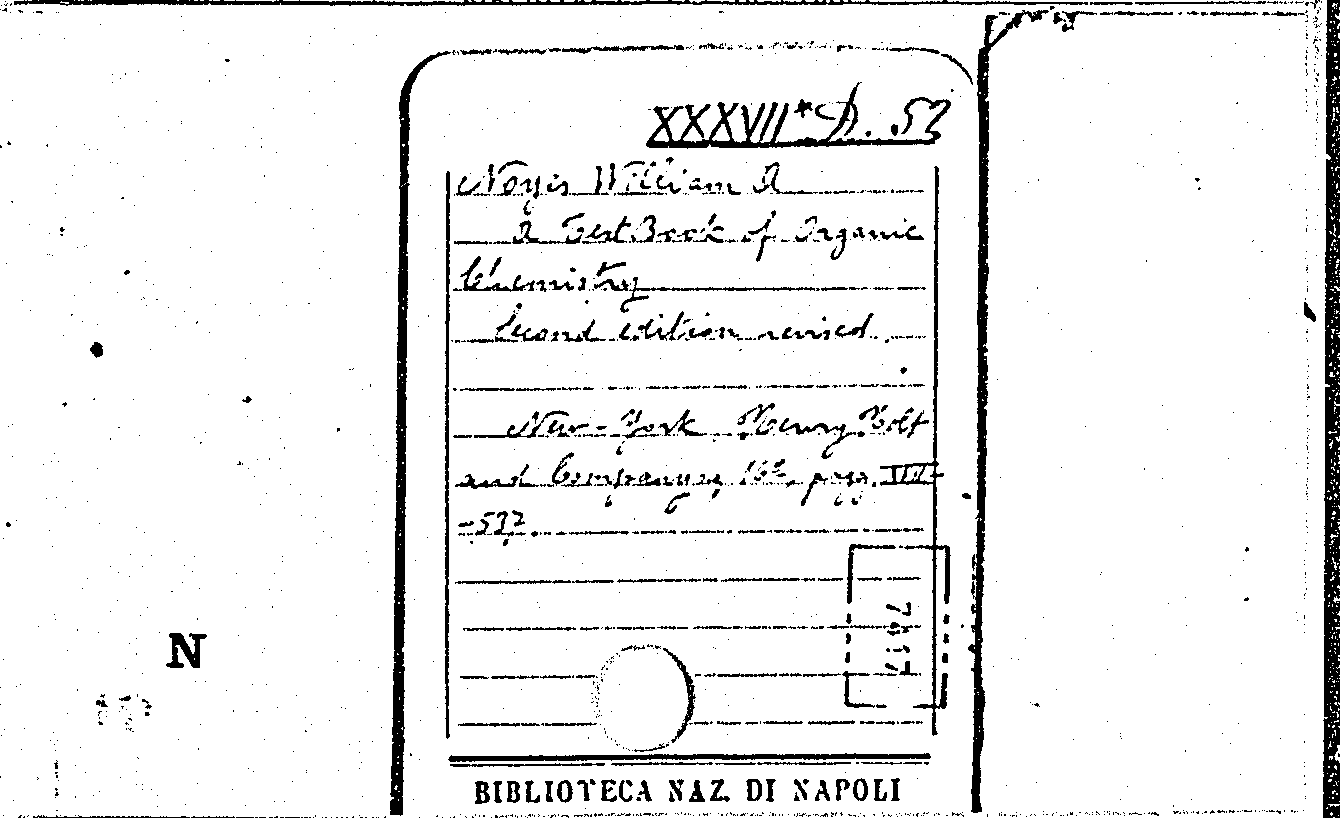 XXXVII* D. 53
Noyes William A
A Text Book of Organic
Chemistry
Second edition revised.
New-York Henry Holt
and Company, 16º, pagg.
-532.
N
BIBLIOTECA NAZ. DI NAPOLI